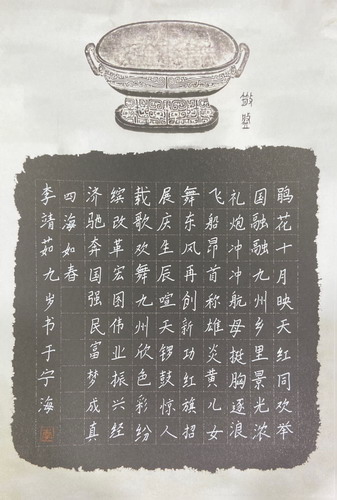 鹃花十月映天红同欢举
国融融九州乡里景光浓
礼炮冲冲航母挺胸逐浪
飞船昂首称雄炎黄儿女
舞东风再创新功红旗招
展庆生辰喧天锣鼓惊人
载歌欢舞九州欣色彩纷
缤改革宏图伟业振兴经
济驰奔国强民富梦成真
四海如春
李靖茹九岁书于宁海